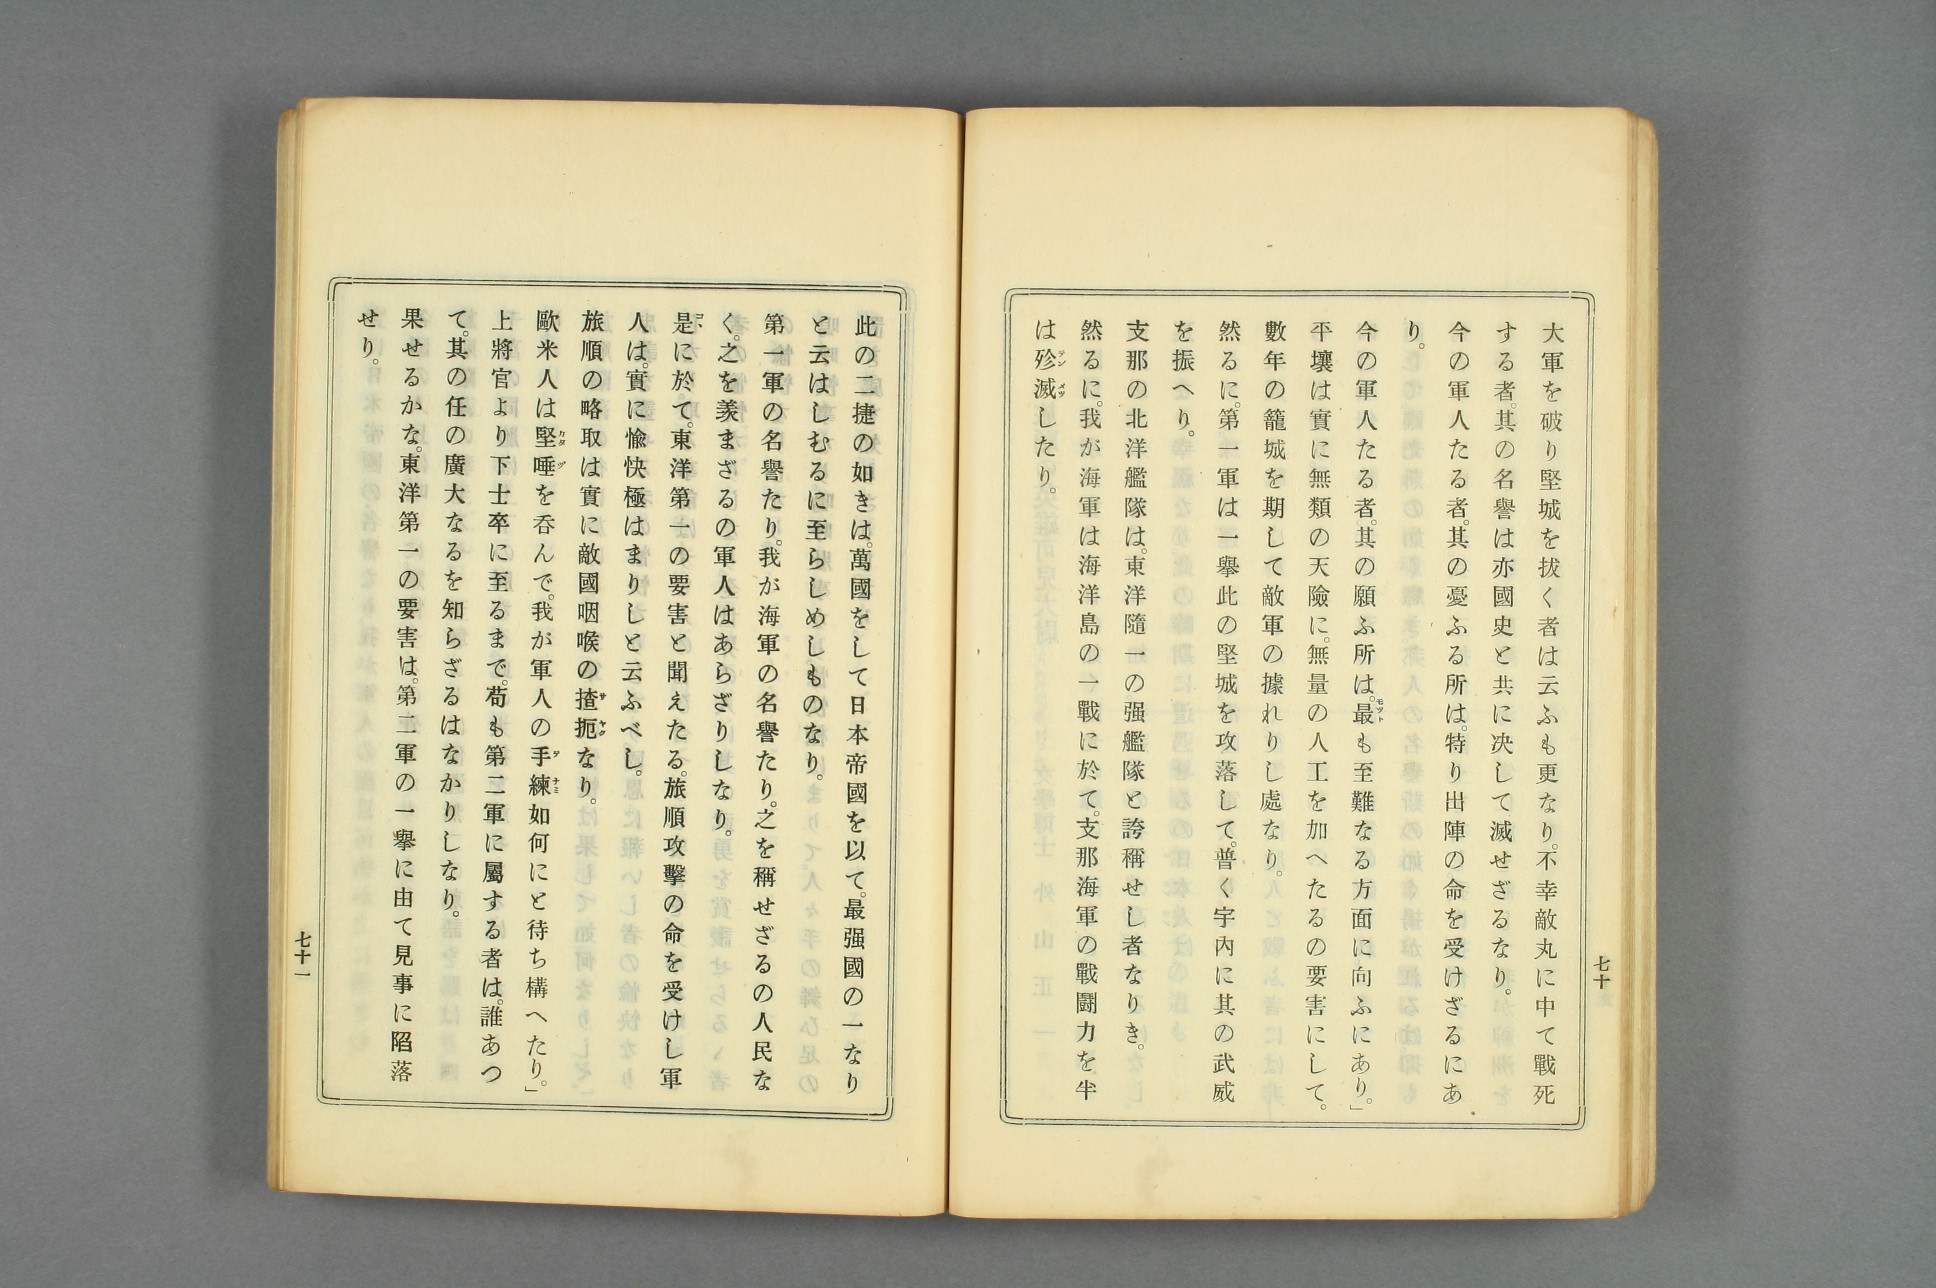 大軍を破り堅城を抜く者は云ふも更なり。不幸敵丸に中て戰死
する者。其の名譽は亦國史と共に決して滅せざるなり。
今の軍人たる者。其の憂ふる所は。特り出陣の命を受けざるにあ
り。
今の軍人たる者。其の願ふ所は。最も至難なる方面に向ふにあり。」
平壤は實に無類の天險に。無量の人工を加へたるの要害にして。
數年の籠城を期して敵軍の據れりし處なり。
然るに。第一軍は一擧此の堅城を攻落して。普く宇內に其の武威
を振へり。
支那の北洋艦隊は。東洋隨一の强艦隊と誇稱せし者なりき。
然るに。我が海軍は海洋島の一戰に於て。支那海軍の戰鬪力を半
は殄滅したり。
七十
此の二捷の如きは。萬國をして日本帝國を以て。最强國の一なり
と云はしむるに至らしめしものなり。
第一軍の名譽たり。我が海軍の名譽たり。之を稱せざるの人民な
く。之を羨まざるの軍人はあらざりしなり。
是に於て。東洋第一の要害と聞えたる。旅順攻擊の命を受けし軍
人は。實に愉快極はまりしと云ふべし。
旅順の略取は實に敵國咽喉の揸扼なり。
歐米人は堅唾を呑んで。我が軍人の手練如何にと待ち構へたり。」
上將官より下士卒に至るまで。苟も第二軍に屬する者は。誰あつ
て。其の任の廣大なるを知らざるはなかりしなり。
果せるかな。東洋第一の要害は。第二軍の一擧に由て見事に陷落
せり。
七十一